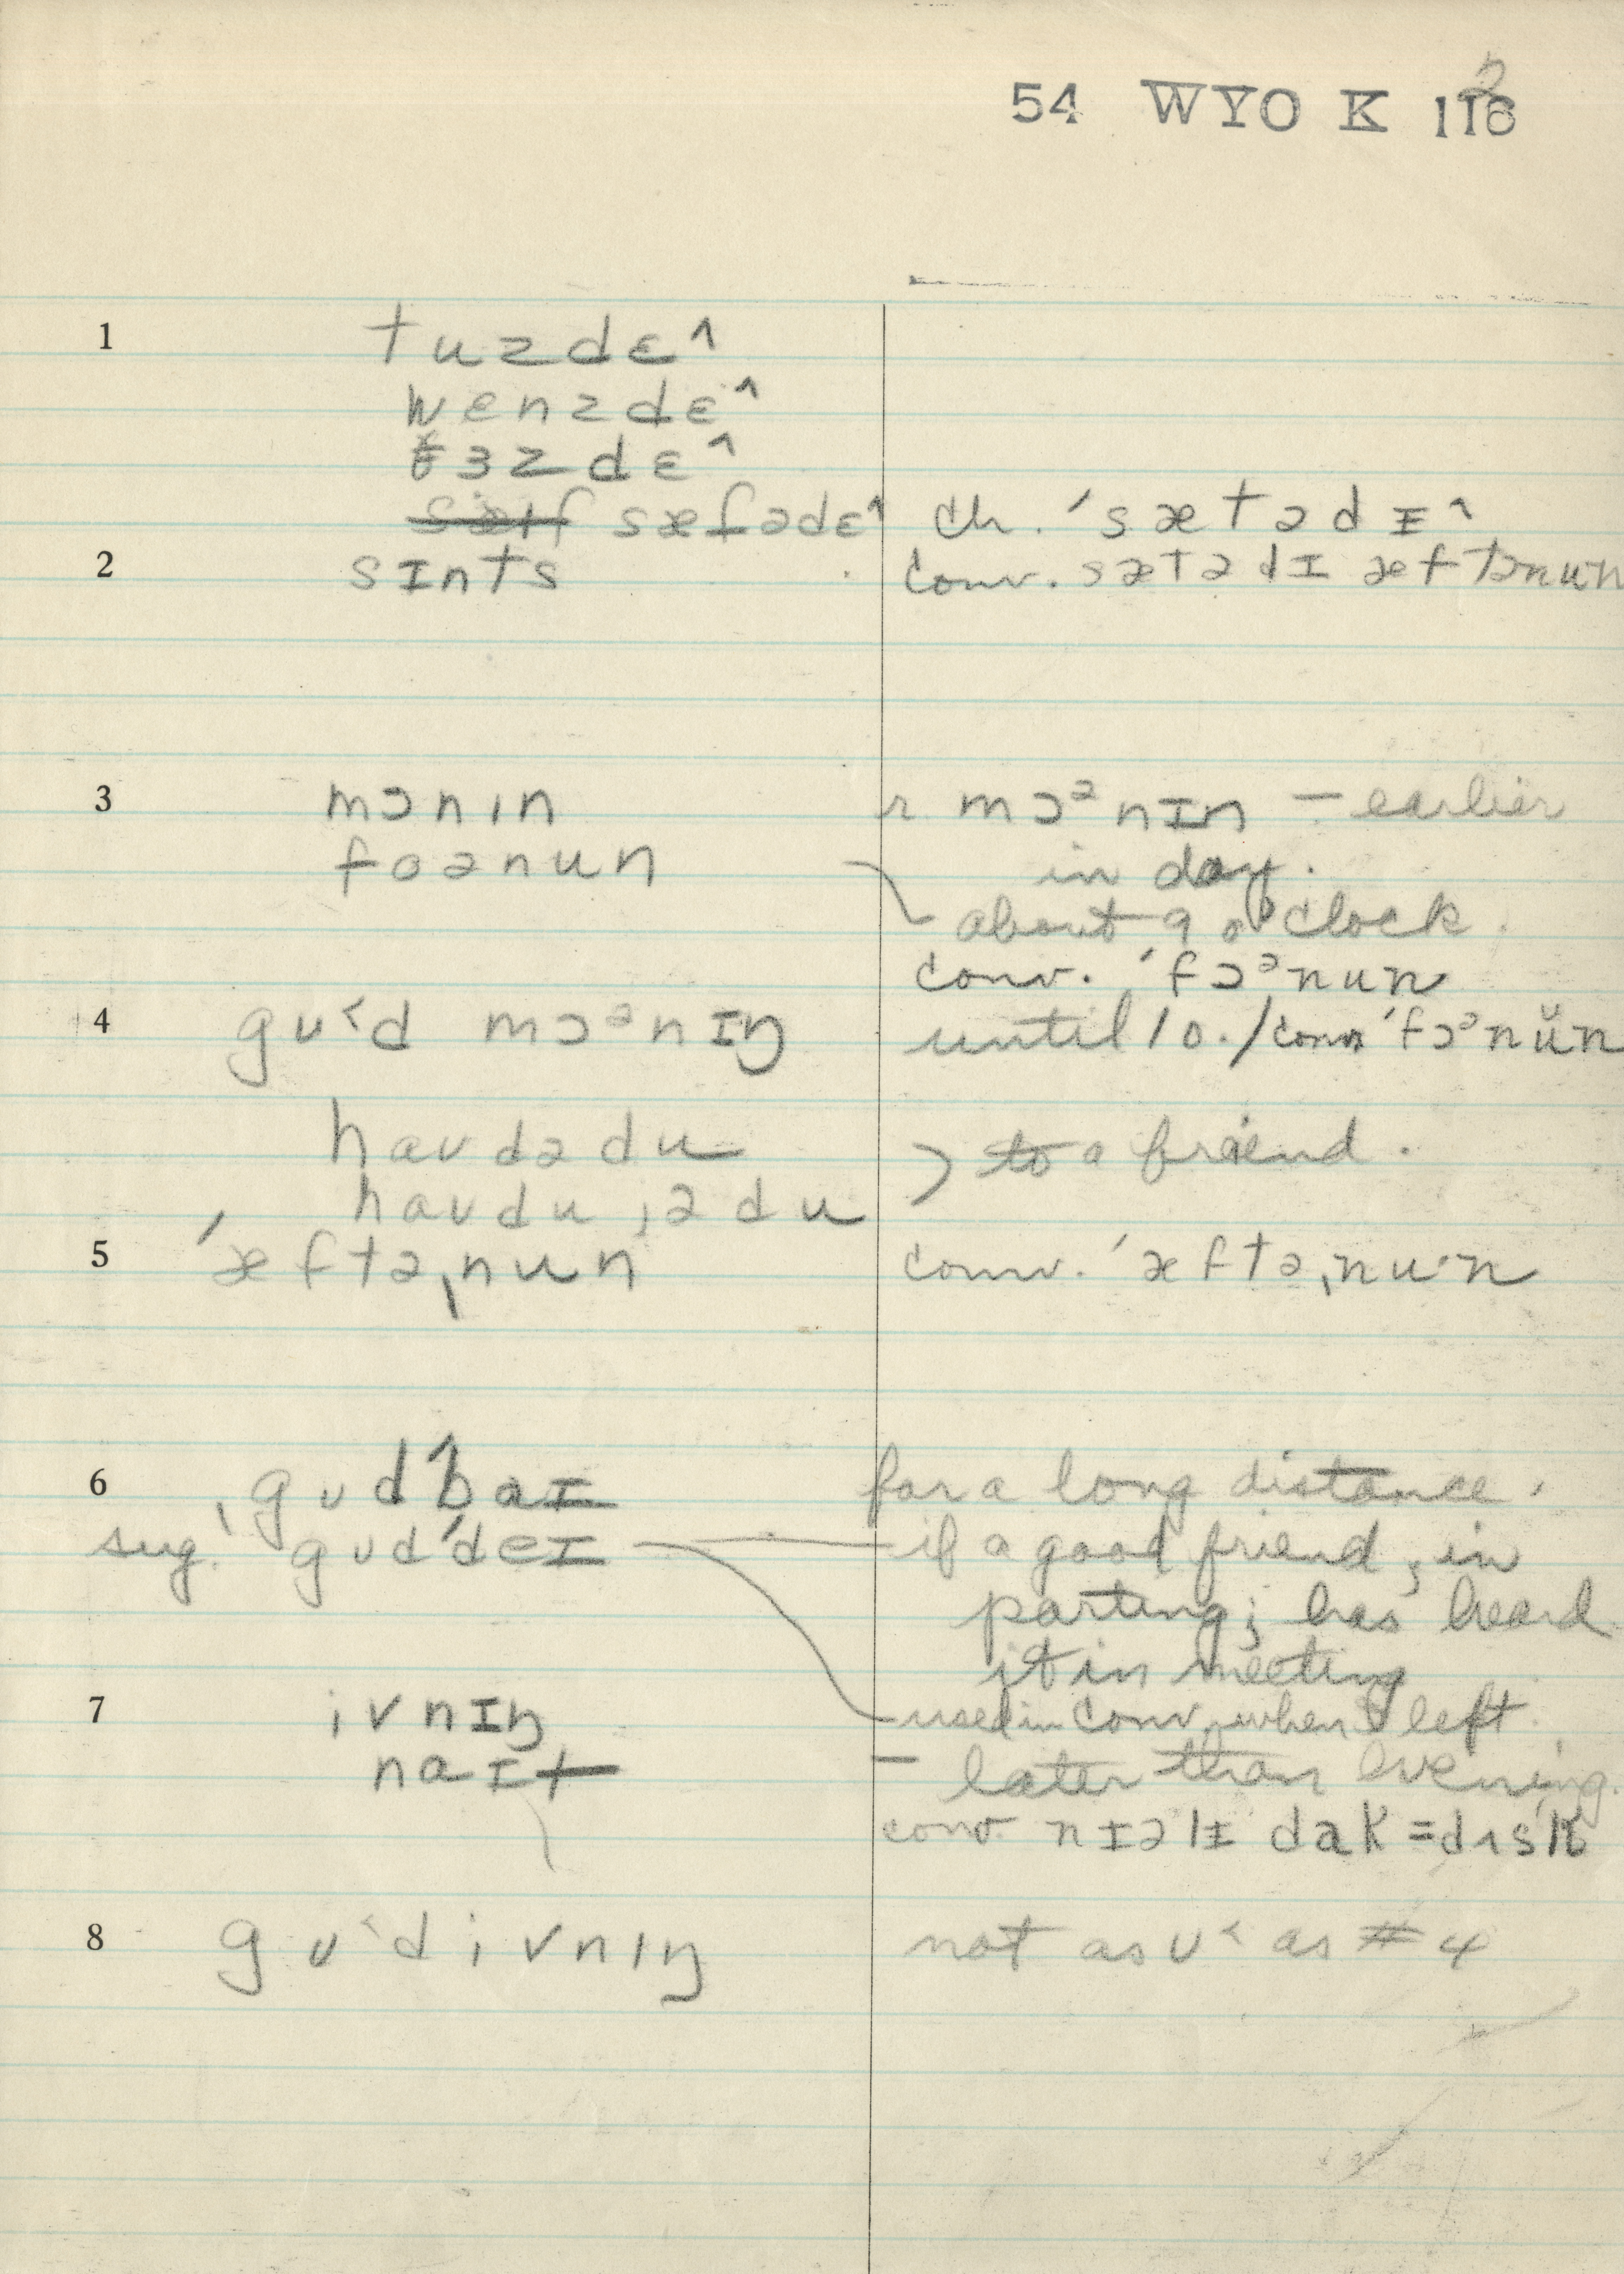 54 WYO K 116 2
1 tuzdɛ^
wenzdɛ^
ɜzdɛ^
sæfədɛ^ ch. ˈsætədɪ^
2 sɪnts conv. sætədɪ æftənun
3 mɔnın r. mɔᵊnɪn – earlier
foənun in day.
about 9 o'clock.
conv. ˈfɔᵊnun
4 gu˂d mɔᵊnɪŋ until 10. / conv ˈfɔᵊnŭn
haudədu ) to a friend.
haudu jədu
5 ˈæftəˌnun conv. ˈæftəˌnu·n
6 ˌgudˈbaɪ for a long distance.
sug. gudˈdeɪ – if a good friend, in
parting; has heard
it in meeting
7 ivnɪŋ – used in conv. when I left.
naɪt – later than evening.
conv. nɪəlɪ dak = dʌsk
8 gu˂d ivnıŋ not as u˂ as #4